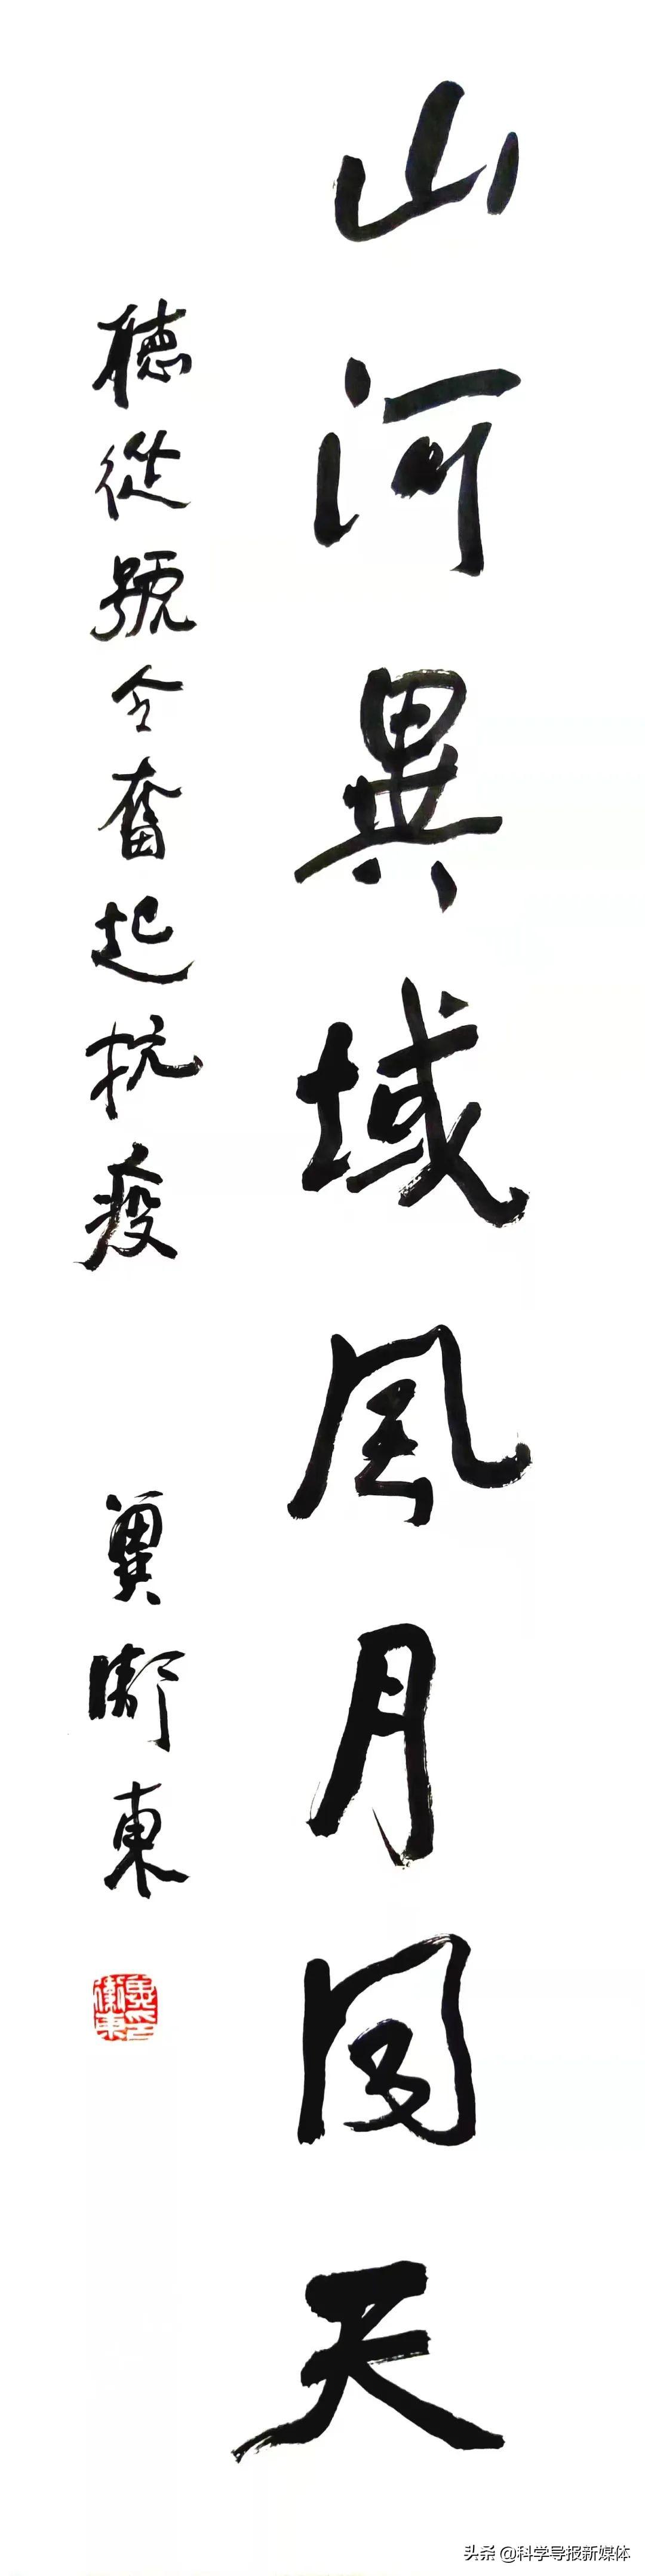 山河異域風月同天
聽從號令奮起抗疫
冀衛東
冀衛東印
头条 @科学导报新媒体